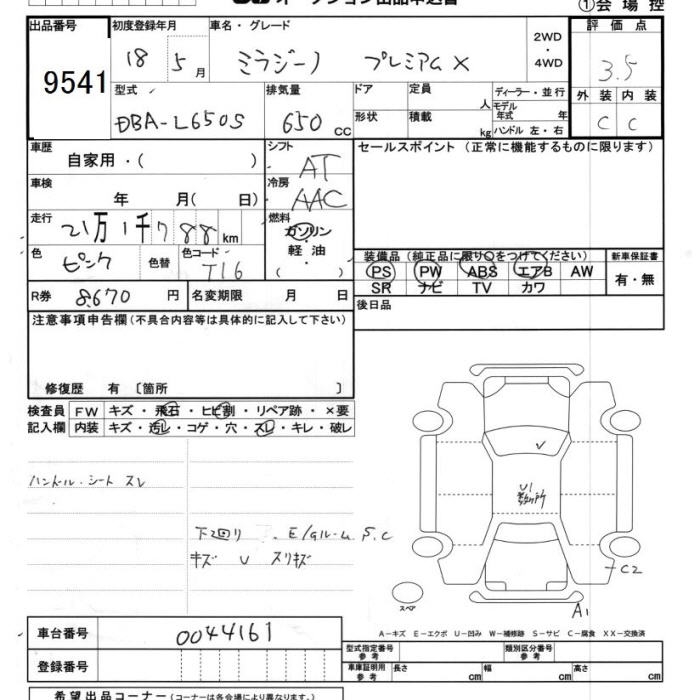 オークション出品申込書
①会場控
出品番号
9541
初度登録年月
18 5月
車名・グレード
ミラジーノ プレミアムX
2WD
・
4WD
評価点
3.5
外装 内装
C C
型式
DBA-L650S
排気量
650cc
ドア
形状
定員
人
積載
kg
ディーラー・並行
モデル年式 年
ハンドル 左・右
車歴
自家用・( )
車検
年 月( 日)
走行
21万1千788km
色
ピンク
色替
色コード
T16
シフト
AT
冷房
AAC
燃料
ガソリン
・
軽油
・
( )
セールスポイント (正常に機能するものに限ります)
装備品(純正品に限り○をつけてください)
PS PW ABS エアB AW
SR ナビ TV カワ
新車保証書
有・無
後日品
R券 8,670 円
名変期限 月 日
注意事項申告欄(不具合内容等は具体的に記入して下さい)
修復歴 有 〔箇所 〕
検査員記入欄
FW キズ・飛石・ヒビ割・リペア跡・×要
内装 キズ・汚レ・コゲ・穴・スレ・キレ・破レ
ハンドル・シート スレ
下廻り E/gルーム S.C
キズ U スリキズ
U1
数ヶ所
C2
A1
スペア
A-キズ E-エクボ U-凹み W-補修跡 S-サビ C-腐食 XX-交換済
車台番号 0044161
登録番号
型式指定番号 参考
類別区分番号 参考
車庫証明用 参考 長さ cm 幅 cm 高さ cm
希望出品コーナー(コーナーは各会場により異なります。)